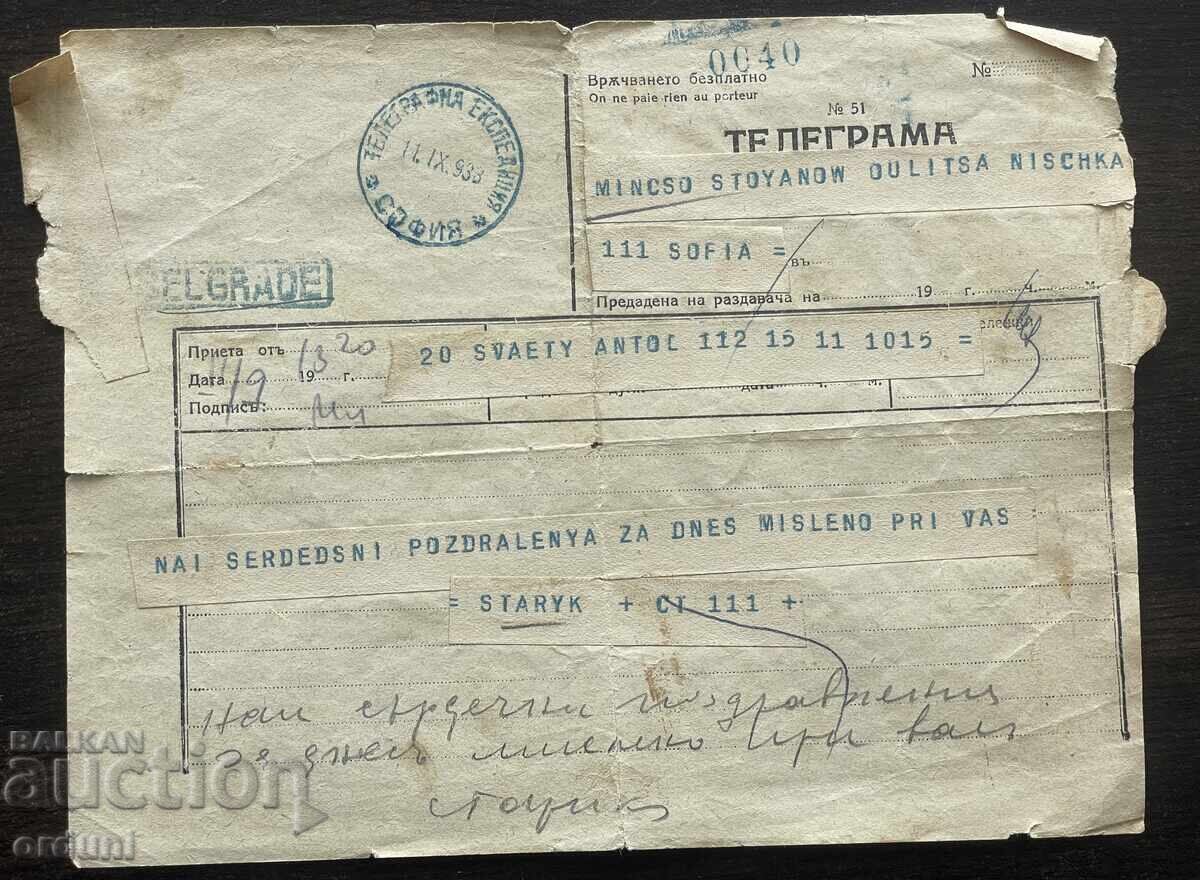 0040
Врѫчването безплатно
On ne paie rien au porteur
№
№ 51
ТЕЛЕГРАМА
ТЕЛЕГРАФНА ЕКСПЕДИЦИЯ * СОФИЯ *
11.IX.933
MINCSO STOYANOW OULITSA NISCHKA
111 SOFIA =
въ
BELGRADE
Предадена на раздавача на 19 г. ч. м.
Приета отъ 1320
20 SVAETY ANTOL 112 15 11 1015 =
Дата 11/9 19 г.
дата ч. м.
Подписъ:
NAI SERDEDSNI POZDRALENYA ZA DNES MISLENO PRI VAS
= STARYK + CT 111 +
най сърдечни поздравления
за днесъ мислено при васъ
старик
BALKAN
auction
orduni